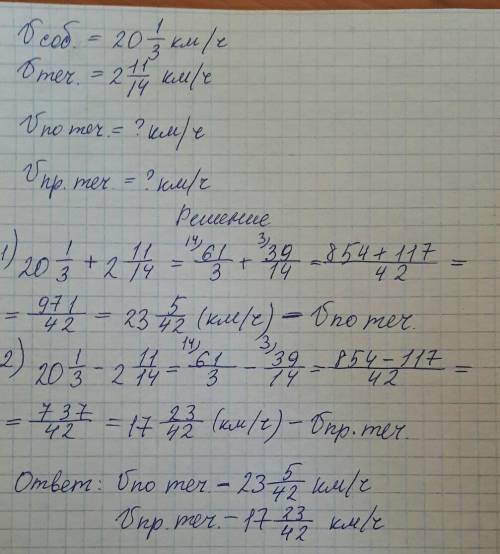 Vсоб. = 20 1/3 км/ч
Vтеч. = 2 11/14 км/ч
Vпо теч. = ? км/ч
Vпр. теч. = ? км/ч
Решение
1) 20 1/3 + 2 11/14 = 14) 61/3 + 3) 39/14 = 854 + 117/42 =
= 971/42 = 23 5/42 (км/ч) – Vпо теч.
2) 20 1/3 – 2 11/14 = 14) 61/3 – 3) 39/14 = 854 – 117/42 =
= 737/42 = 17 23/42 (км/ч) – Vпр. теч.
Ответ: Vпо теч. – 23 5/42 км/ч
Vпр. теч. – 17 23/42 км/ч